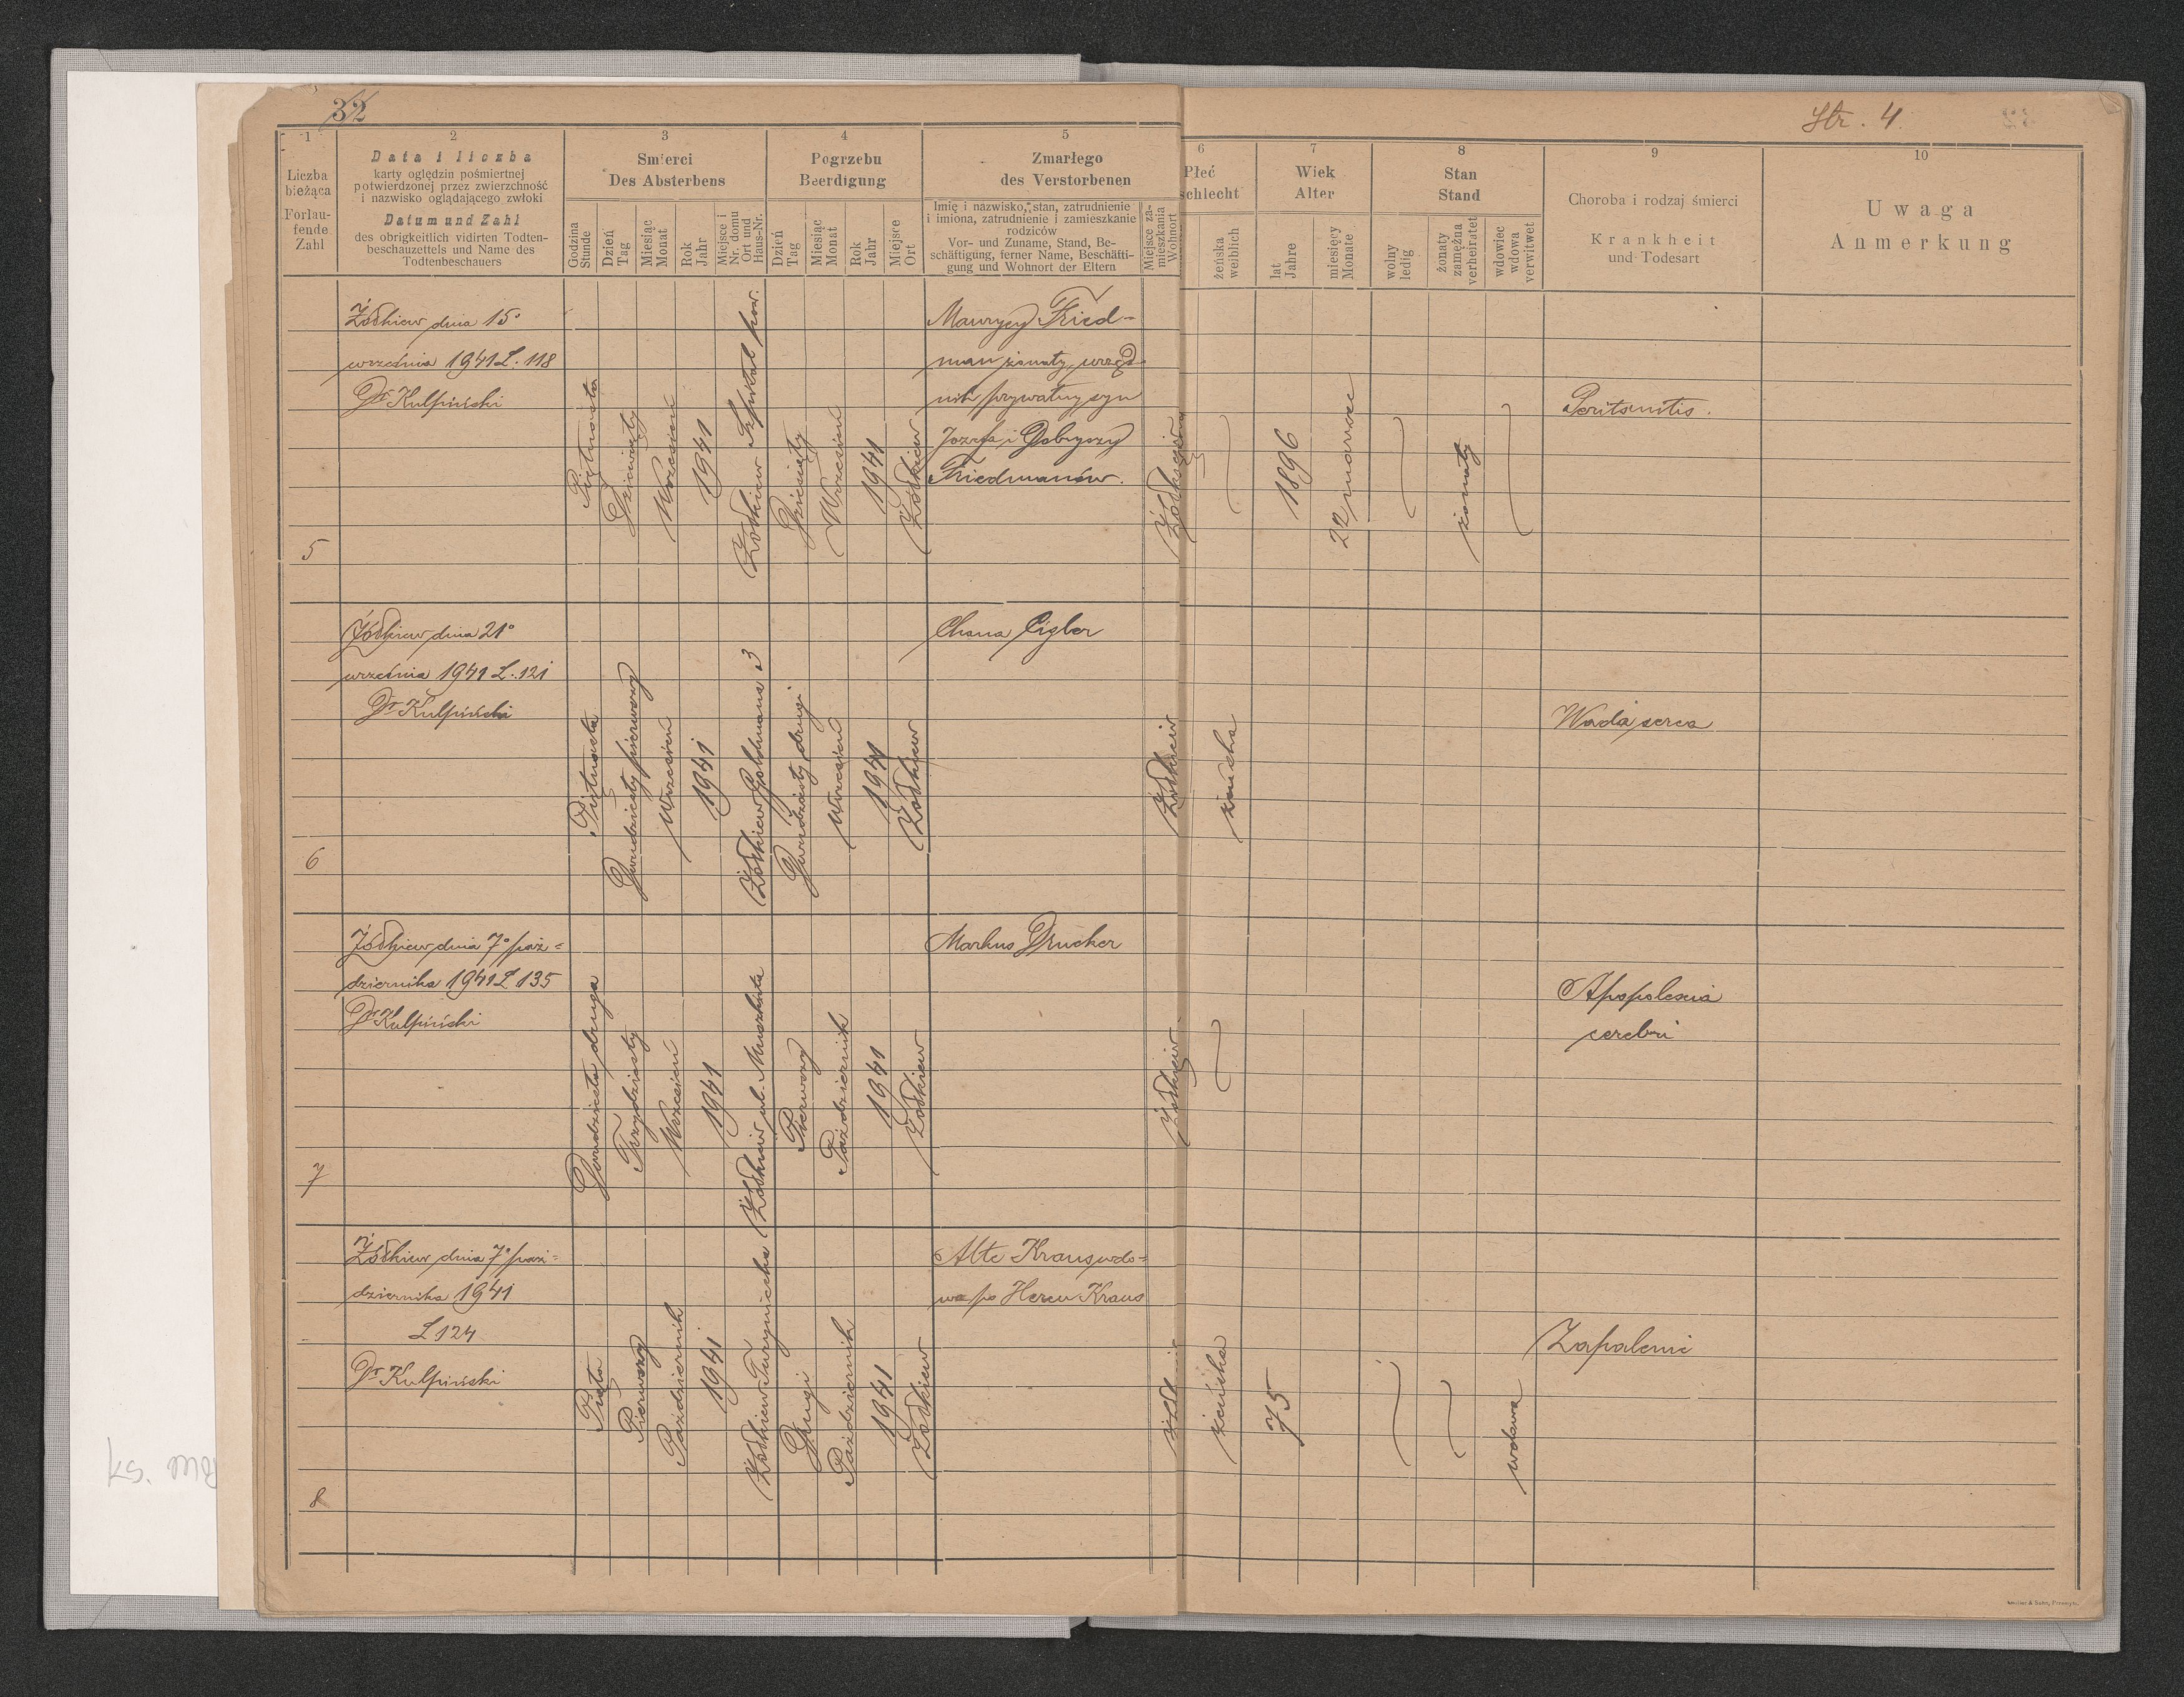 32
Str. 4
1
2
3
4
5
6
7
8
9
10
Liczba
bieżąca
Forlau-
fende
Zahl
Data i liczba
karty oględzin pośmiertnej
potwierdzonej przez zwierzchność
i nazwisko oglądającego zwłoki
Datum und Zahl
des obrigkeitlich vidirten Todten-
beschauzettels und Name des
Todtenbeschauers
Smierci
Des Absterbens
Godzina
Stunde
Dzień
Tag
Miesiąc
Monat
Rok
Jahr
Miejsce i
Nr. domu
Ort und
Haus-Nr.
Pogrzebu
Beerdigung
Dzień
Tag
Miesiąc
Monat
Rok
Jahr
Miejsce
Ort
Zmarłego
des Verstorbenen
Imię i nazwisko, stan, zatrudnienie
i imiona, zatrudnienie i zamieszkanie
rodziców
Vor- und Zuname, Stand, Be-
schäftigung, ferner Name, Beschäfti-
gung und Wohnort der Eltern
Miejsce za-
mieszkania
Wohnort
Płeć
schlecht
żeńska
weiblich
Wiek
Alter
lat
Jahre
miesięcy
Monate
Stan
Stand
wolny
ledig
żonaty
zamężna
verheiratet
wdowiec
wdowa
verwitwet
Choroba i rodzaj śmierci
Krankheit
und Todesart
Uwaga
Anmerkung
5
Żółkiew dnia 15º
września 1941 L. 118
Dr Kulpiński
Piętnasta
Dziewiąty
Wrzesień
1941
Żółkiew Szpital pow.
Dziesiąty
Wrzesień
1941
Żółkiew
Maurycy Fried-
man żonaty, urzęd
nik prywatny, syn
Józefa i Dobryszy
Friedmanów.
1896
22 marzec
żonaty
Peritonitis.
6
Żółkiew dnia 21º
września 1941 L. 121
Dr Kulpiński
Piętnasta
Dwudziesty pierwszy
Wrzesień
1941
Żółkiew Goldmana 3
Dwudziesty drugi
Wrzesień
1941
Żółkiew
Chana Cigler
Żółkiew
żeńska
Wada serca
7
Żółkiew dnia 7º paź=
dziernika 1941 L 135
Dr Kulpiński
Dwudziesta druga
Trzydziesty
Wrzesień
1941
Żółkiew ul.
Pierwszy
Październik
1941
Żółkiew
Markus Drucker
Żółkiew
Apopolexia
cerebri
8
Żółkiew dnia 7º paź=
dziernika 1941
L 124
Dr Kulpiński
Piąta
Pierwszy
Październik
1941
Żółkiew Turyniecka
Drugi
Październik
1941
Żółkiew
Alte Kraus, wdo=
wa po Hersu Kraus
żeńska
75
wdowa
Zapaleni